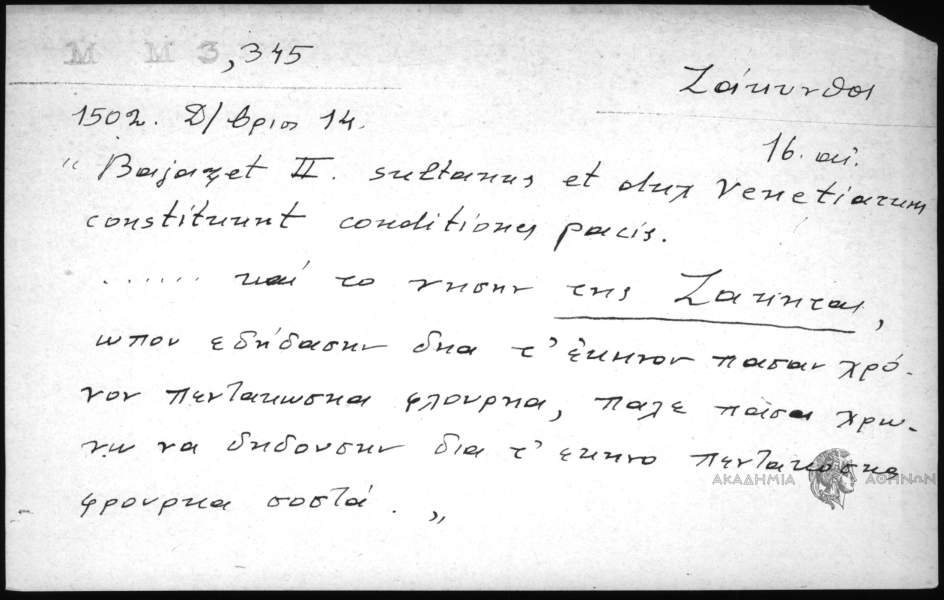 M M 3, 345
Ζάκυνθος
1502. Δ/βριος 14.
16. αἰ.
" Bajazet II. sultanus et dux Venetiarum
constituunt conditiones pacis.
....... καί το νησην της Ζακητας,
ωπου εδήδασην δηα τ' έκηνον πασαν χρό-
νον πεντακωσηα φλουρηα, παλε πάσα χρω-
νω να δηδουσην δια τ' εκηνο πεντακοσηα
φρουρηα σοστά. "
ΑΚΑΔΗΜΙΑ ΑΘΗΝΩΝ